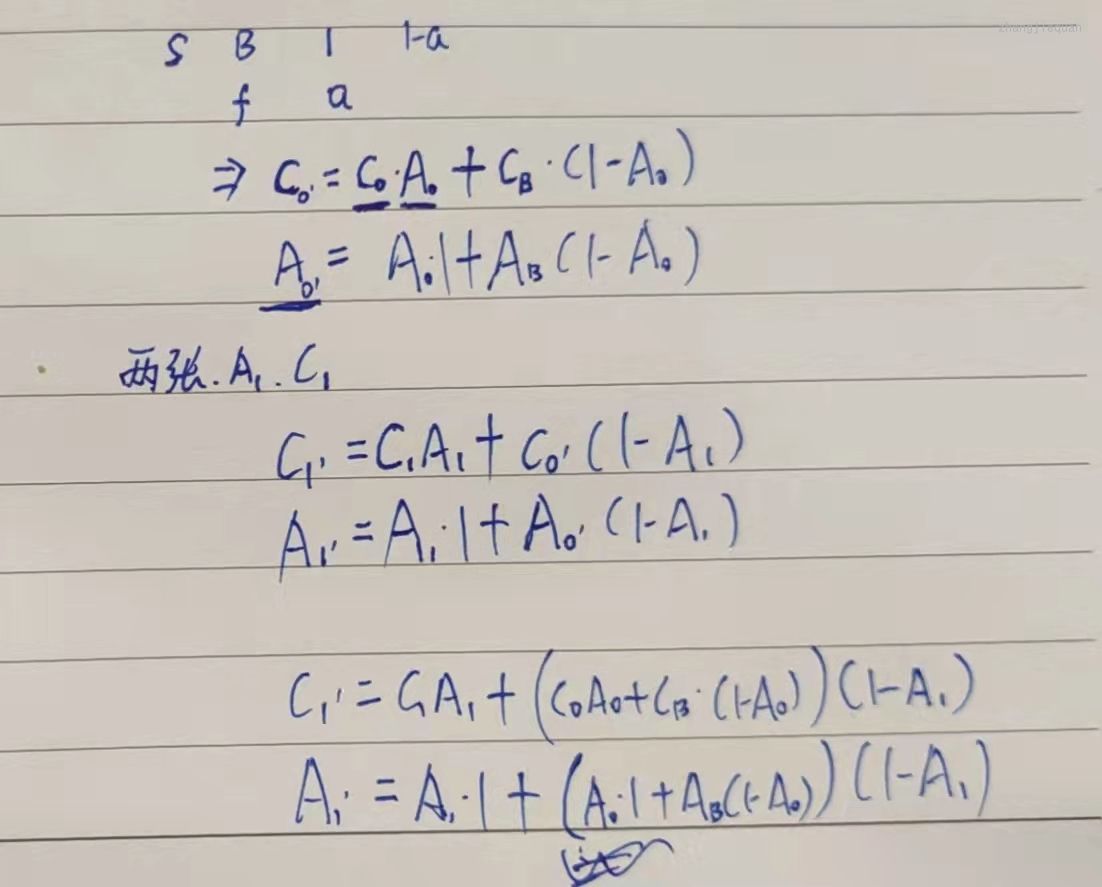 zhangjiaquan
S B 1 1-a
f a
⇒ C₀' = C₀·A₀ + C_B·(1-A₀)
A₀' = A₀·1 + A_B (1-A₀)
两张. A₁. C₁
C₁' = C₁A₁ + C₀' (1-A₁)
A₁' = A₁·1 + A₀' (1-A₁)
C₁' = C₁A₁ + (C₀A₀+C_B·(1-A₀))(1-A₁)
A₁' = A₁·1 + (A₀·1+A_B(1-A₀))(1-A₁)